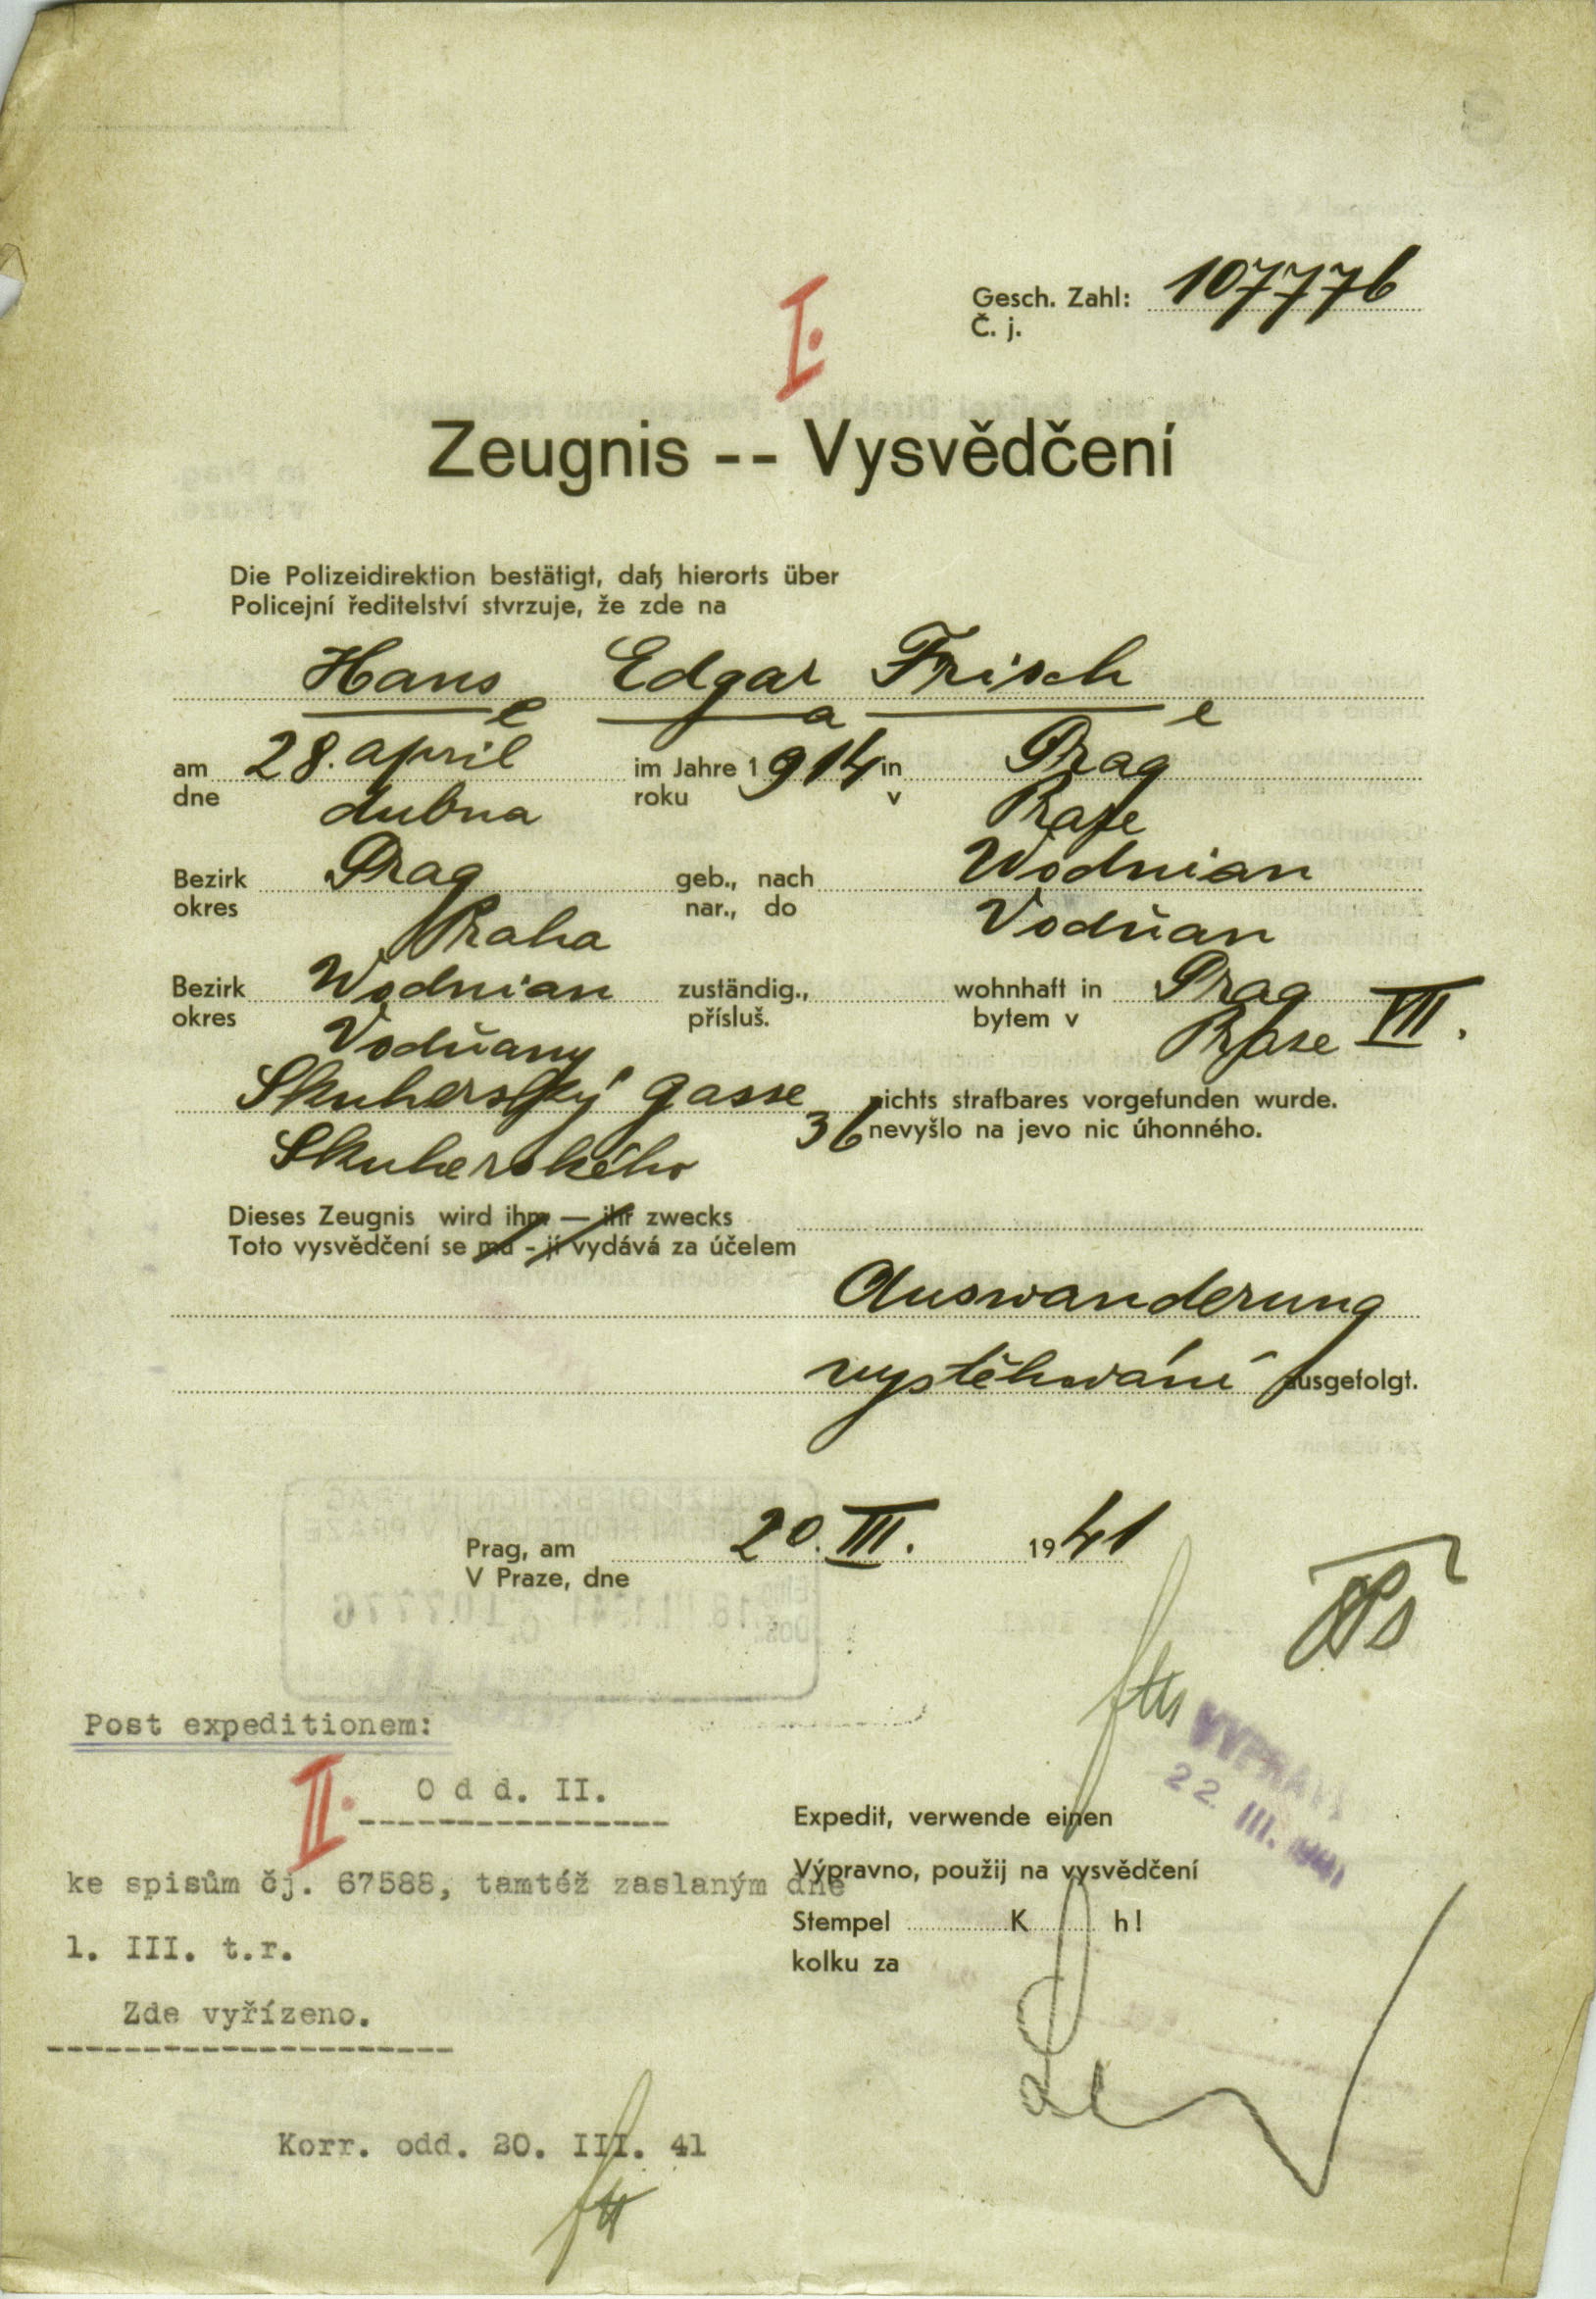 Gesch. Zahl: 107776
Č. j.
I.
Zeugnis -- Vysvědčení
Die Polizeidirektion bestätigt, daß hierorts über
Policejní ředitelství stvrzuje, že zde na
Hans Edgar Frisch
e a e
am 28. april im Jahre 1914 in Prag
dne dubna roku v Praze
Bezirk Prag geb., nach Wodnian
okres Praha nar., do Vodňan
Bezirk Wodnian zuständig., wohnhaft in Prag VII.
okres Vodňany přísluš. bytem v Praze
Skuherský gasse 36 nichts strafbares vorgefunden wurde.
Skuherského nevyšlo na jevo nic úhonného.
Dieses Zeugnis wird ihm — ihr zwecks
Toto vysvědčení se mu - jí vydává za účelem
Auswanderung
vystěhování ausgefolgt.
Prag, am 20. III. 1941
V Praze, dne
Post expeditionem:
II. Odd. II.
VYPRAV
22. III. 1941
Expedit, verwende einen
Výpravno, použij na vysvědčení
ke spisům čj. 67588, tamtéž zaslaným dne
Stempel K h!
1. III. t.r.
kolku za
Zde vyřízeno.
Korr. odd. 20. III. 41